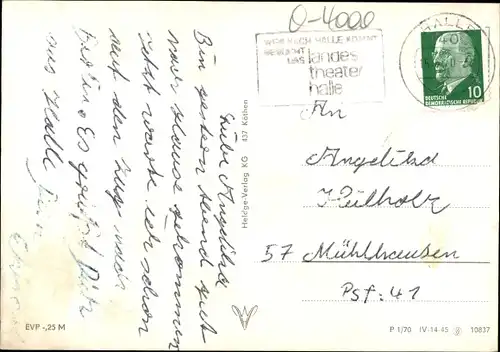 0-4000
HALLE
40
WER NACH HALLE KOMMT
BESUCHT
DAS
landes
theater
halle
DEUTSCHE
DEMOKRATISCHE REPUBLIK
10
Liebe Angelika
Bin gestern Abend gut
nach Hause gekommen
jetzt warte ich schon
auf den Zug nach
Es grüßt Dich
aus Halle Dein
Heldge-Verlag KG 437 Köthen
An
Angelika
Külholz
57 Mühlhausen
Psf: 41
EVP -,25 M
P 1/70 IV-14-45 10837